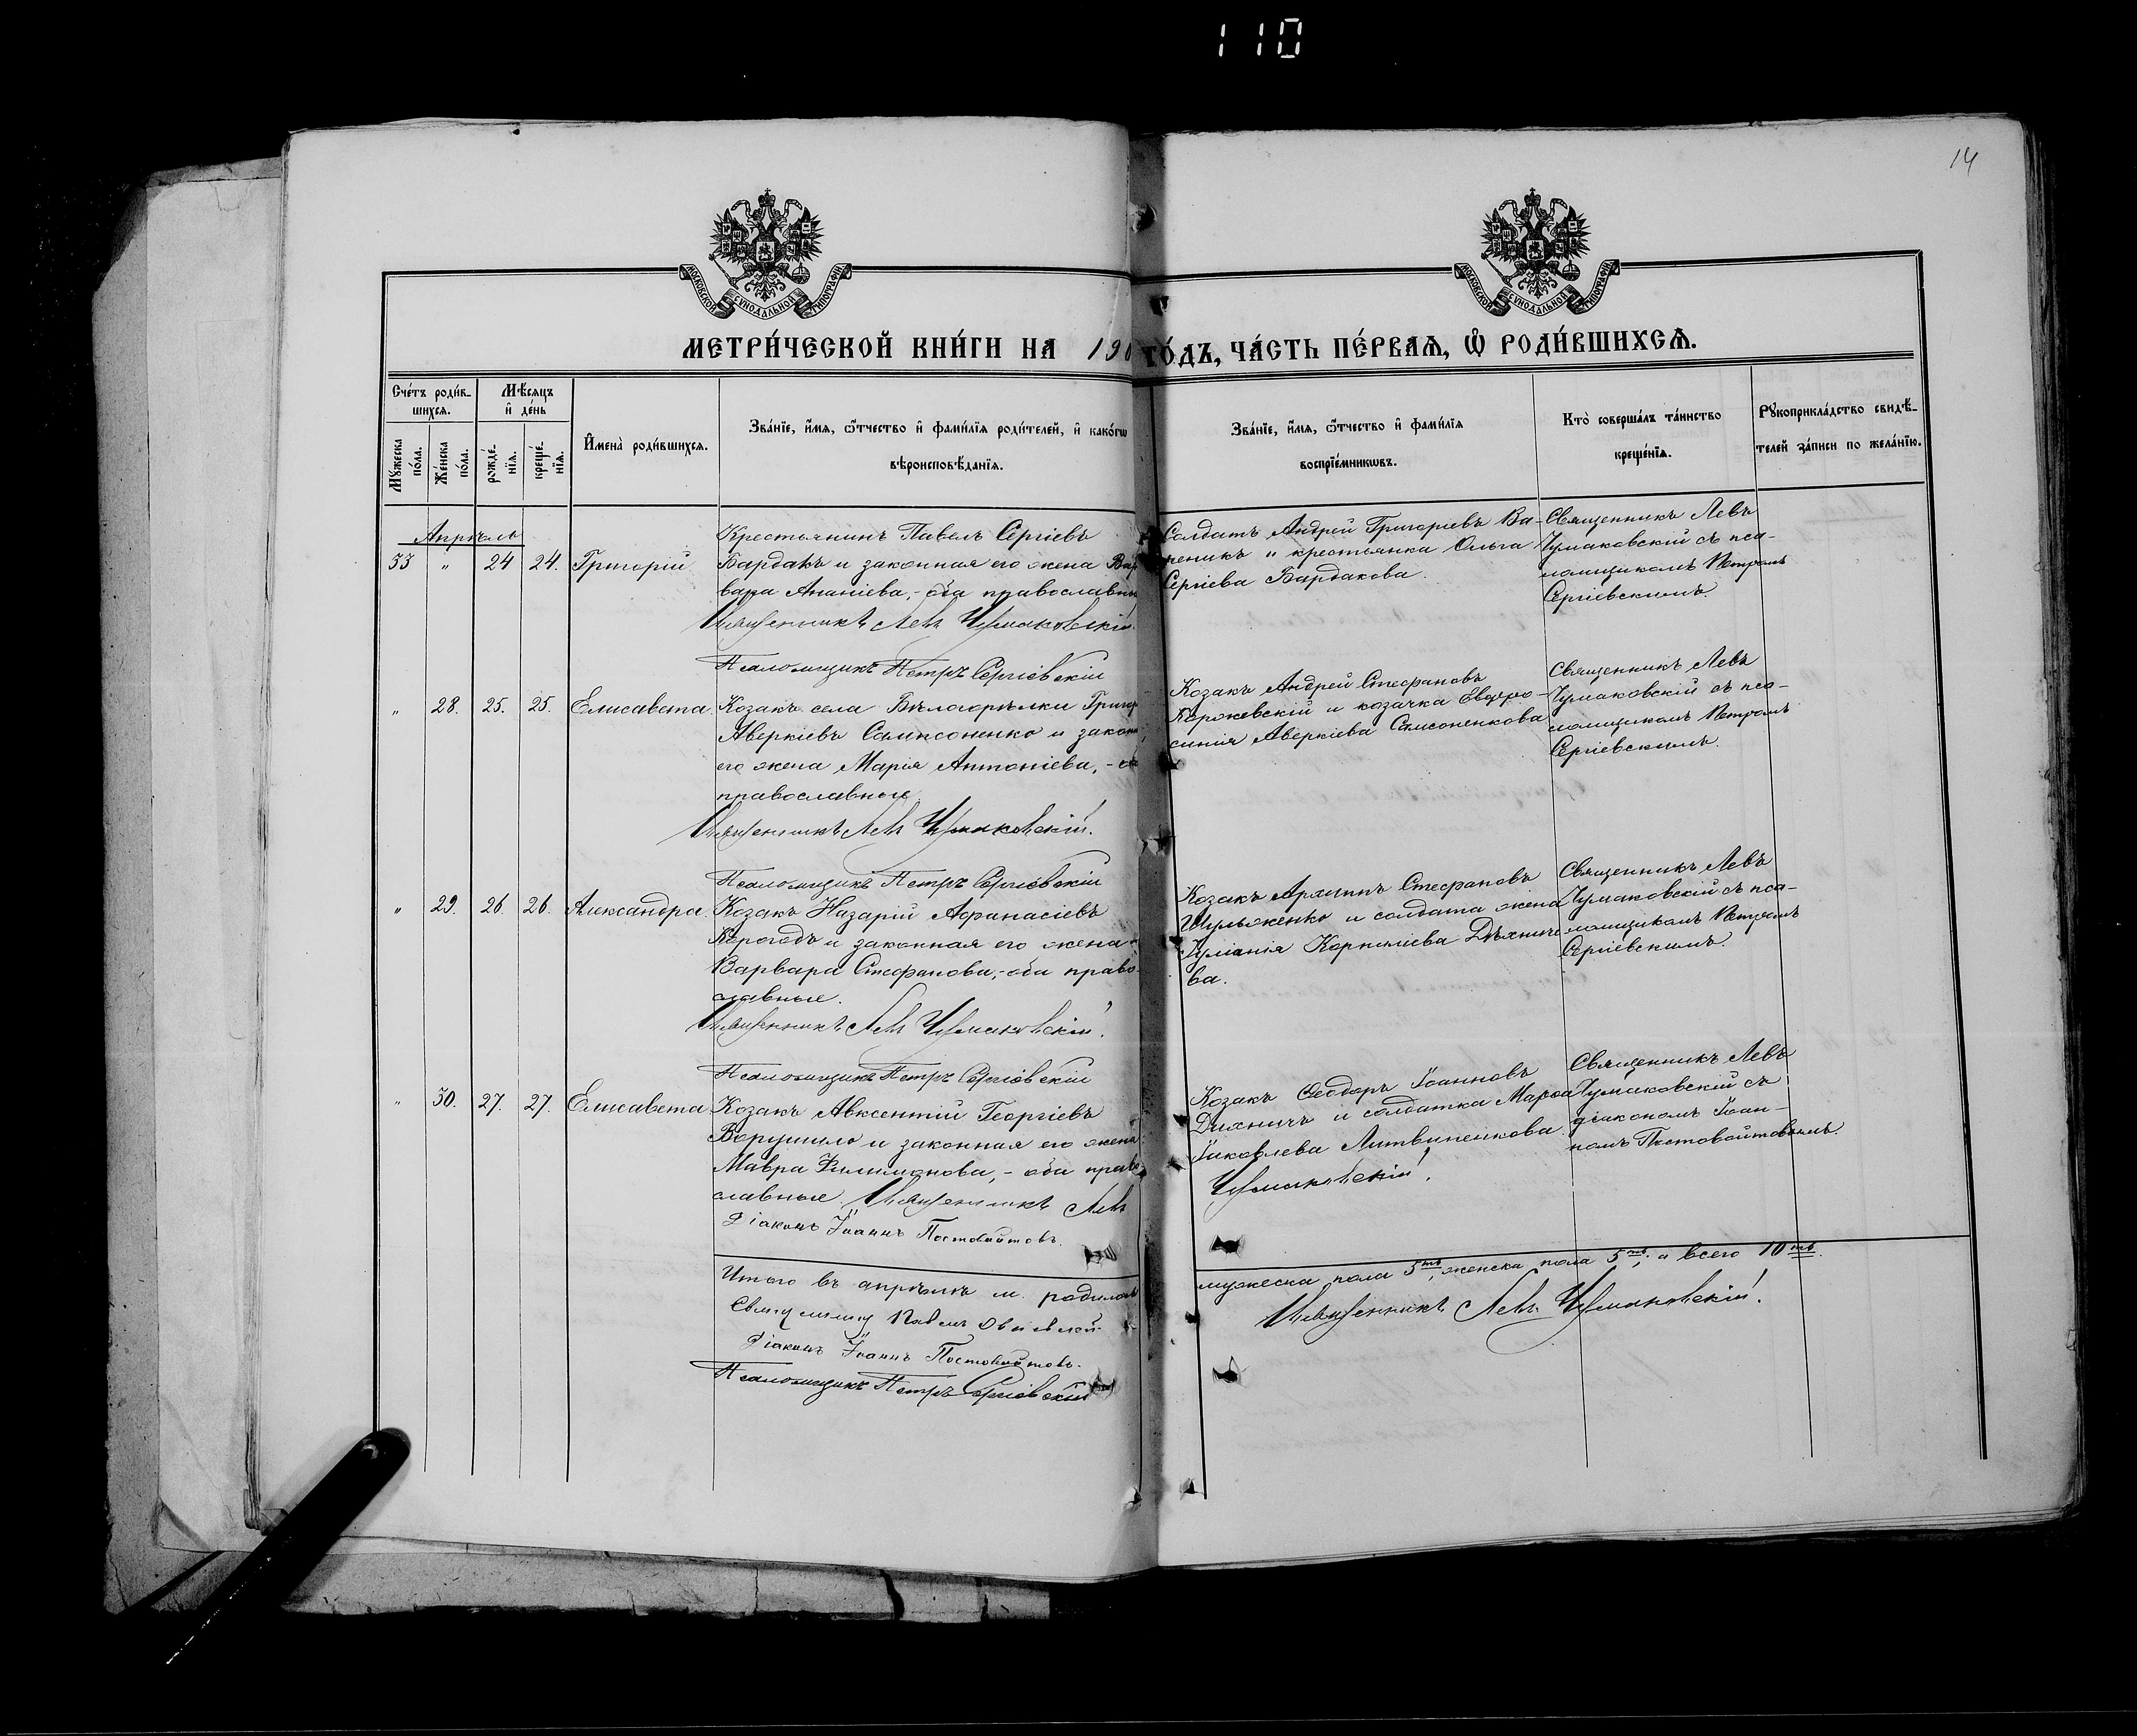 110
14
МОСКОВСКОЙ СѴНОДАЛЬНОЙ ТИПОГРАФІИ
МОСКОВСКОЙ СѴНОДАЛЬНОЙ ТИПОГРАФІИ
МЕТРИ́ЧЕСКОЙ КНИ́ГИ НА 190 ГО́ДЪ, ЧА́СТЬ ПЕ́РВАѦ, Ѡ҆ РОДИ́ВШИХСѦ.
Сче́тъ роди́в-
шихсѧ.
Мꙋ́жеска по́ла.
Же́нска по́ла.
Мѣ́сѧцъ
и҆ де́нь
рожде́-
нїѧ.
креще́-
нїѧ.
И҆мена̀ роди́вшихсѧ.
Зва́нїе, и҆́мѧ, ѻ҆́тчество и҆ фами́лїѧ роди́телей, и҆ како́гѡ
вѣроисповѣ́данїѧ.
Зва́нїе, и҆́мѧ, ѻ҆́тчество и҆ фами́лїѧ
воспрїе́мникѡвъ.
Кто̀ соверша́лъ та́инство
креще́нїѧ.
Рꙋкоприкла́дство свидѣ́-
телей за́писи по жела́нїю.
Апрѣль
33 " 24 24. Григорій
Крестьянинъ Павелъ Сергіевъ
Бардакъ и законная его жена Вар
вара Ананіева,- оба православны
Священникъ Левъ Чумаковскій.
Псаломщикъ Петръ Сергіевскій
Солдатъ Андрей Григоріевъ Ва-
реникъ и крестьянка Ольга
Сергіева Бардакова.
Священникъ Левъ
Чумаковскій съ пса-
ломщикомъ Петромъ
Сергіевскимъ.
" 28. 25. 25. Елисавета.
Козакъ села Бѣлогорѣлки Григор
Аверкіевъ Самсоненко и законн
его жена Марія Антоніева,- об
православные
Священникъ Левъ Чумаковскій.
Псаломщикъ Петръ Сергіевскій
Козакъ Андрей Стефановъ
Корожевскій и козачка Евфро-
синія Аверкіева Самсоненкова
Священникъ Левъ
Чумаковскій съ пса-
ломщикомъ Петромъ
Сергіевскимъ.
" 29. 26. 26. Александра.
Козакъ Назарій Афанасіевъ
Корогодъ и законная его жена
Варвара Стефанова,- оба право-
славные.
Священникъ Левъ Чумаковскій.
Псаломщикъ Петръ Сергіевскій
Козакъ Архиппъ Стефановъ
Шульженко и солдата жена
Іуліанія Корниліева Дѣхниче
ва.
Священникъ Левъ
Чумаковскій съ пса-
ломщикомъ Петромъ
Сергіевскимъ.
" 30. 27. 27. Елисавета
Козакъ Авксентій Георгіевъ
Ворушило и законная его жена
Мавра Филимонова,- оба право-
славные. Священникъ Левъ
Діаконъ Іоаннъ Постовойтовъ.
Козакъ Ѳеодоръ Іоанновъ
Дихничъ и солдатка Марѳа
Іаковлева Литвиненкова.
Чумаковскій.
Священникъ Левъ
Чумаковскій съ
діакономъ Іоан-
номъ Постовойтовымъ.
Итого въ апрѣлѣ м. родилось
мужеска пола 5ть, женска пола 5ть, а всего 10ть.
Священникъ Левъ Чумаковскій.
Діаконъ Іоаннъ Постовойтовъ.
Псаломщикъ Петръ Сергіевскій